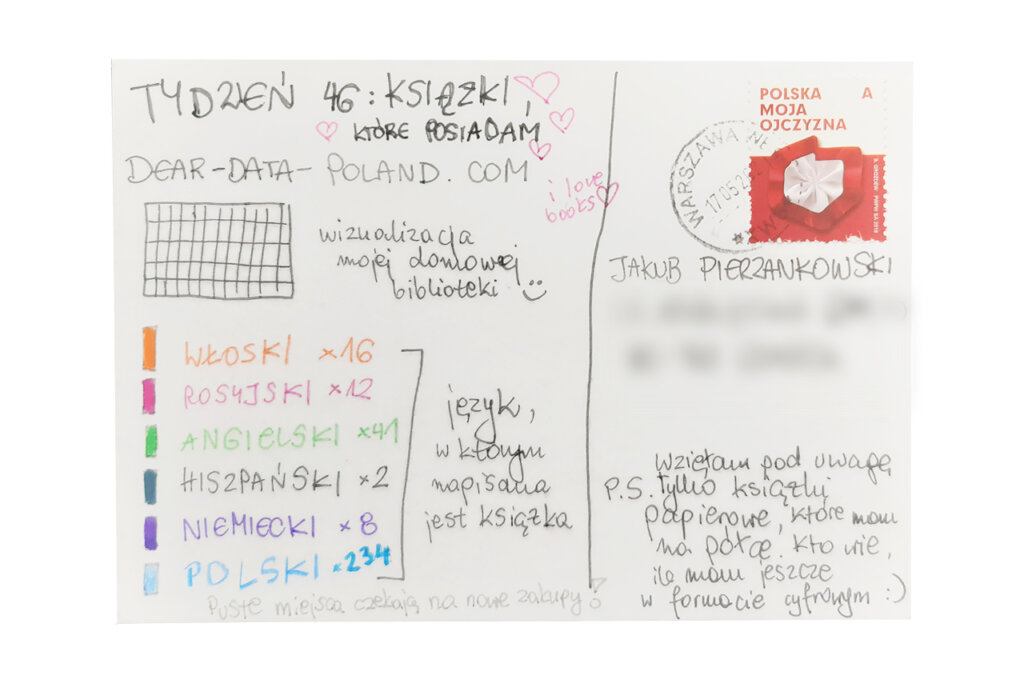 TYDZIEŃ 46: KSIĄŻKI,
KTÓRE POSIADAM
DEAR-DATA-POLAND.COM
i love
books
wizualizacja
mojej domowej
biblioteki
WŁOSKI x16
ROSYJSKI x12
ANGIELSKI x41
HISZPAŃSKI x2
NIEMIECKI x8
POLSKI x234
język,
w którym
napisana
jest książka
Puste miejsca czekają na nowe zakupy!
POLSKA A
MOJA
OJCZYZNA
WARSZAWA
17.05.2
JAKUB PIERZANKOWSKI
wzięłam pod uwagę
P.S. tylko książki
papierowe, które mam
na półce. Kto wie,
ile mam jeszcze
w formacie cyfrowym :)